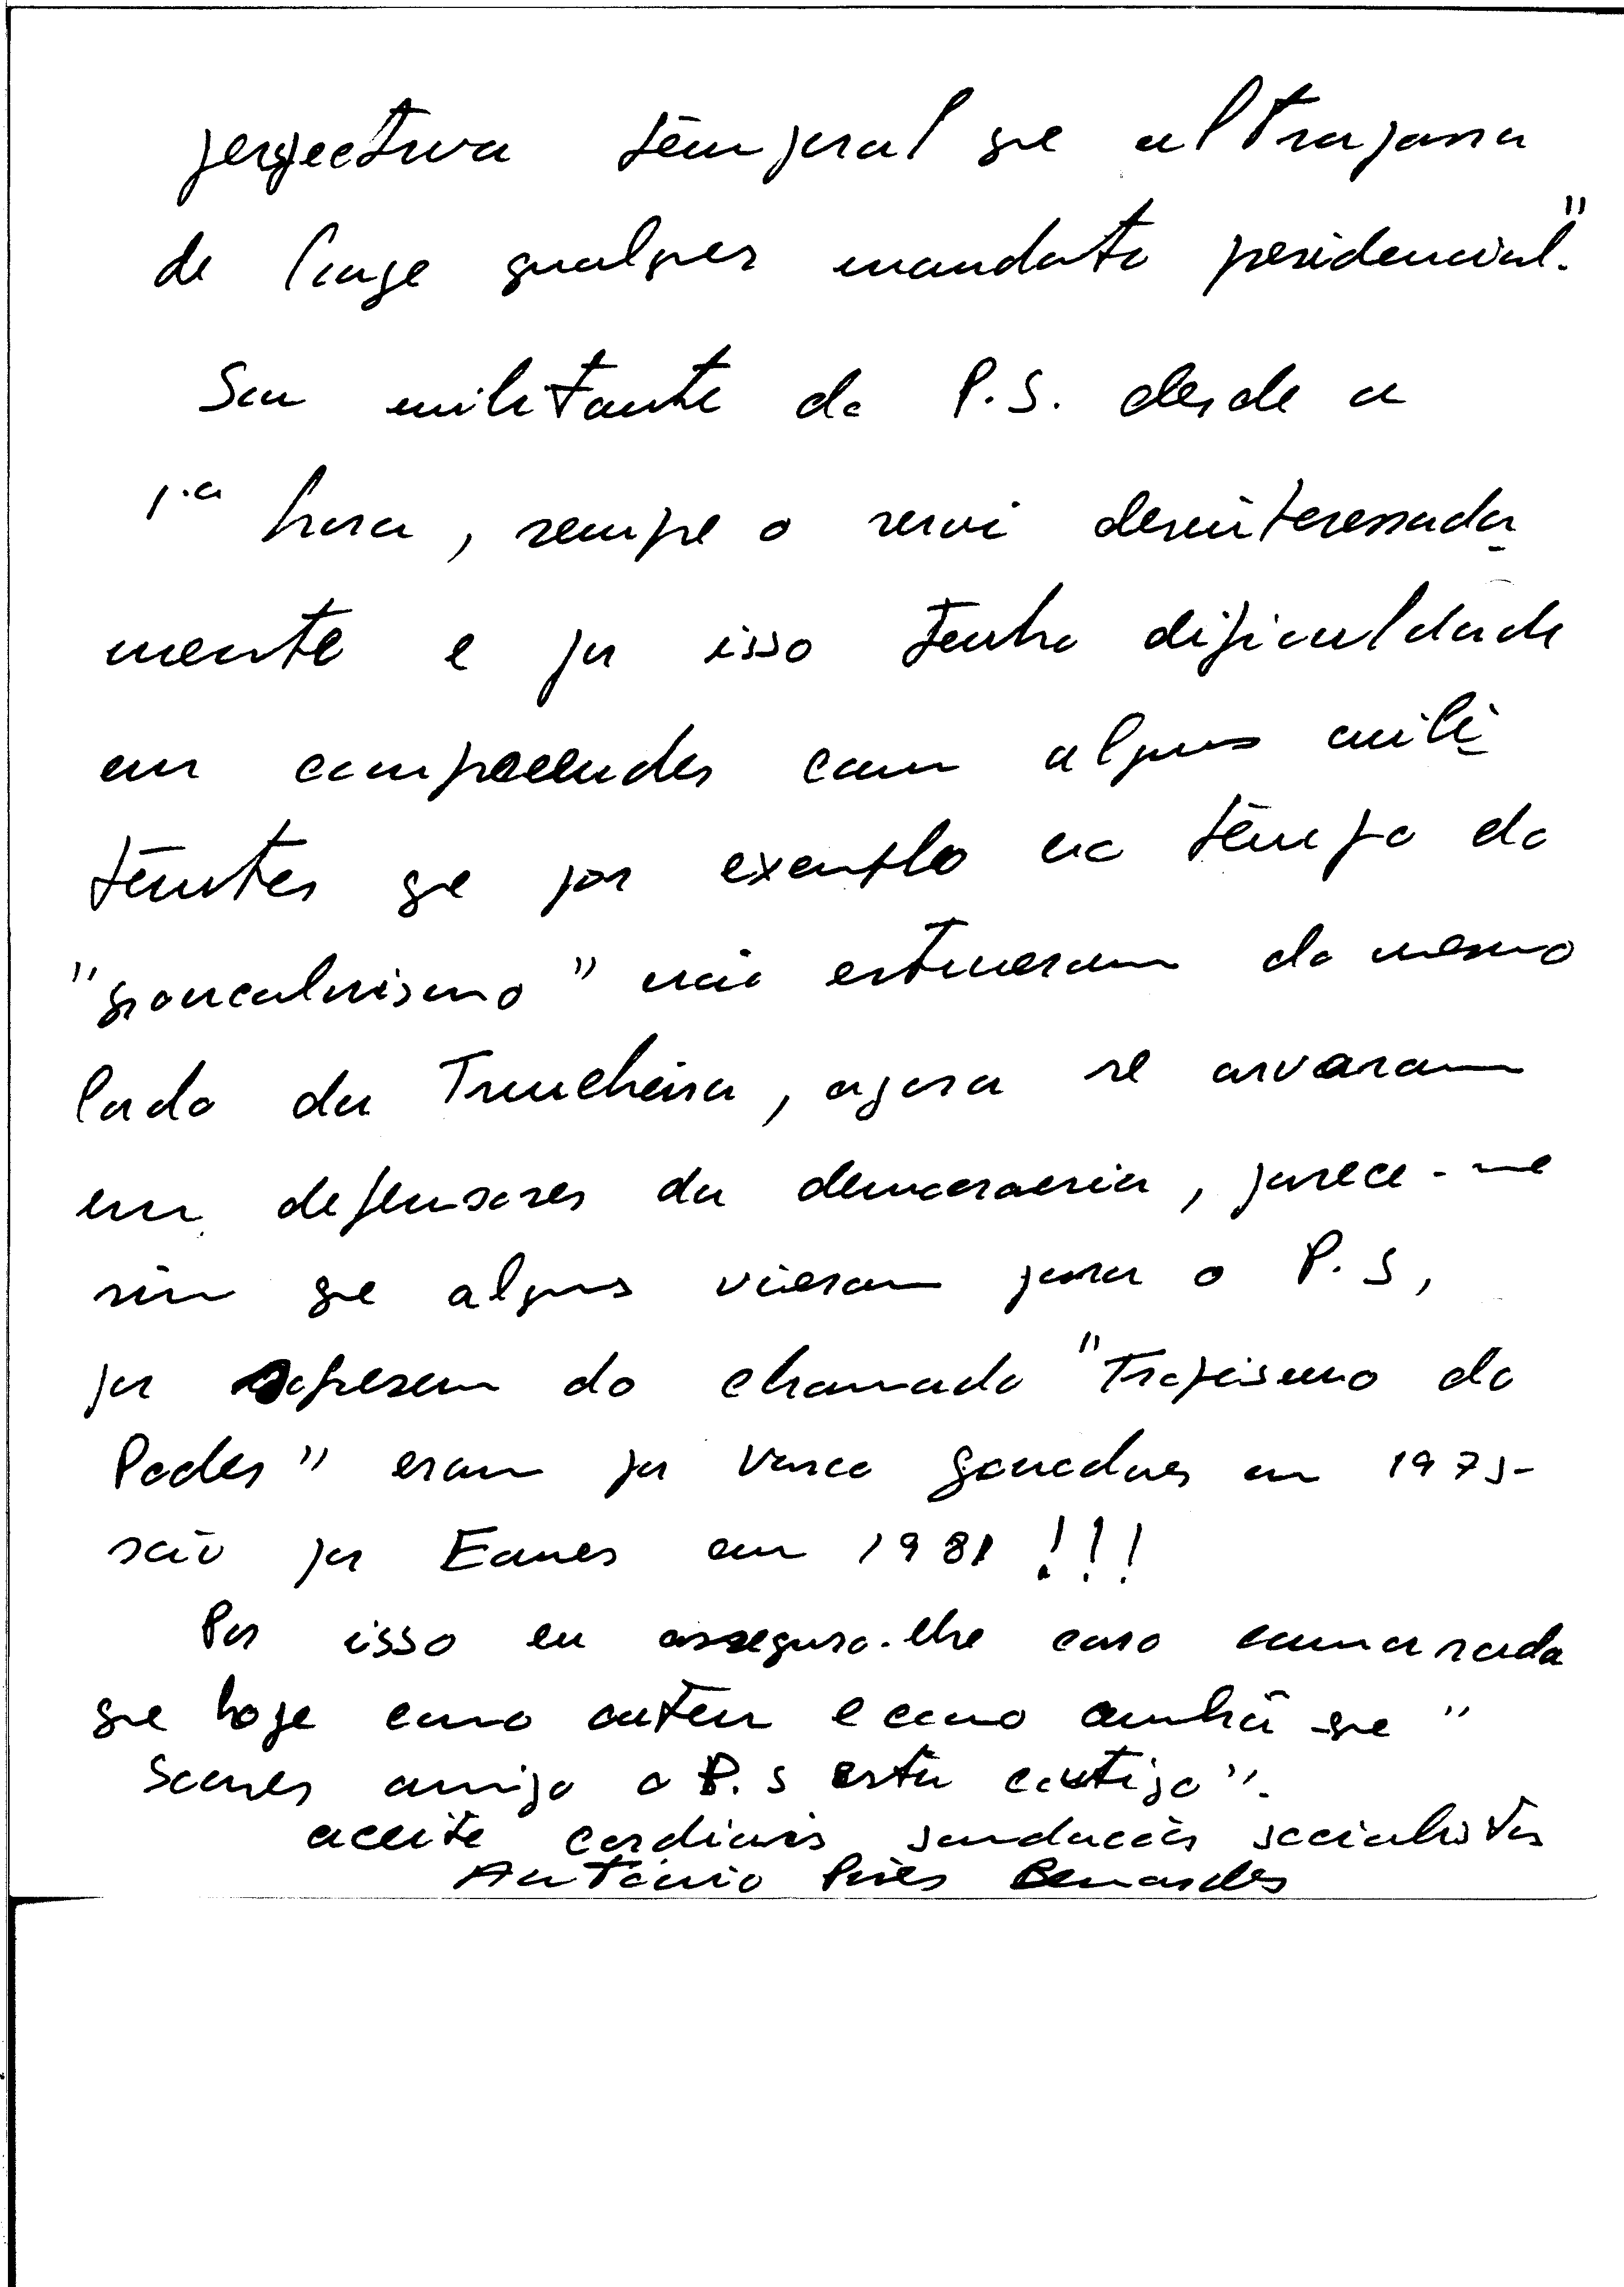 perspectiva temporal que ultrapassa
de longe qualquer mandato presidencial."
Sou militante do P.S. desde a
1.a hora, sempre o servi desinteressada
mente e por isso tenho dificuldade
em compreender como alguns mili
tantes que por exemplo no tempo do
"gonçalvismo" não estiveram do mesmo
lado da Trincheira, agora se arvoram
em defensores da democracia, parece-me
sim que alguns vieram para o P.S,
por do chamado "Tropismo do
Poder" eram por Vasco Gonçalves em 1975-
são por Eanes em 1981!!!
Por isso eu asseguro-lhe caro camarada
que hoje como ontem e como amanhã que "
Soares amigo o P.S está contigo".
aceite cordiais saudações socialistas
António Pires Bernardes